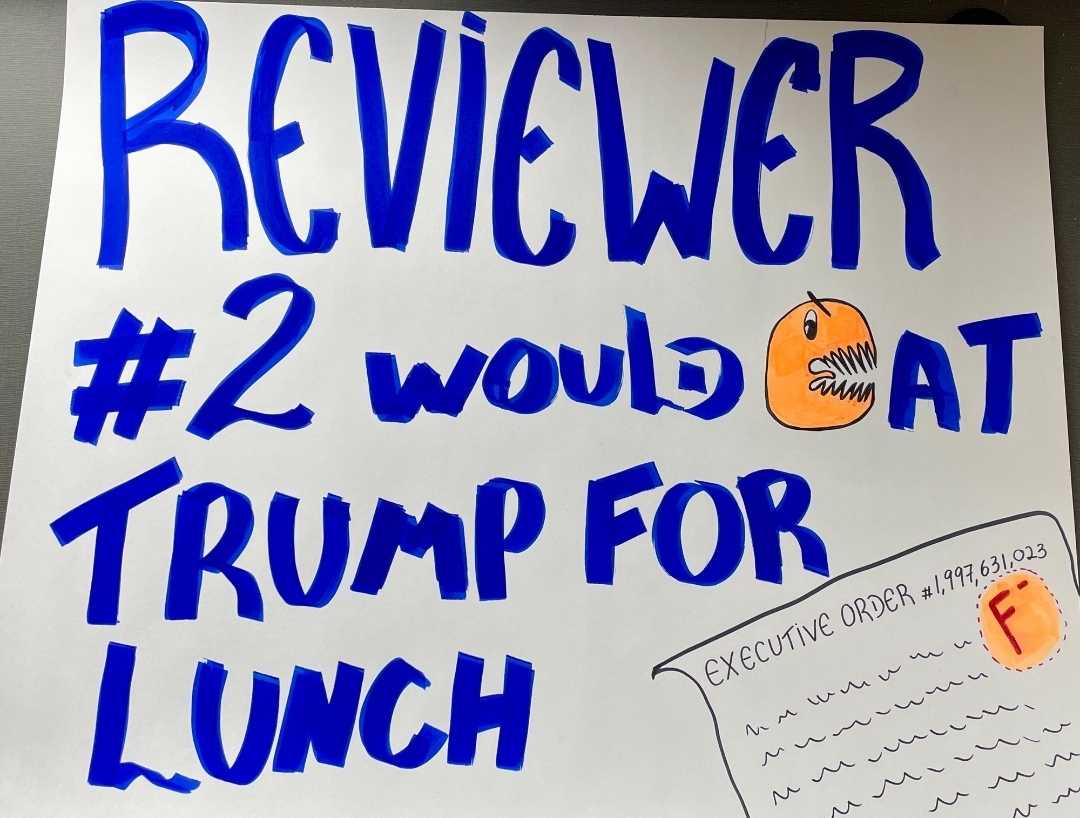 REVIEWER
#2 WOULD EAT
TRUMP FOR
LUNCH
EXECUTIVE ORDER #1,997,631,023
F-